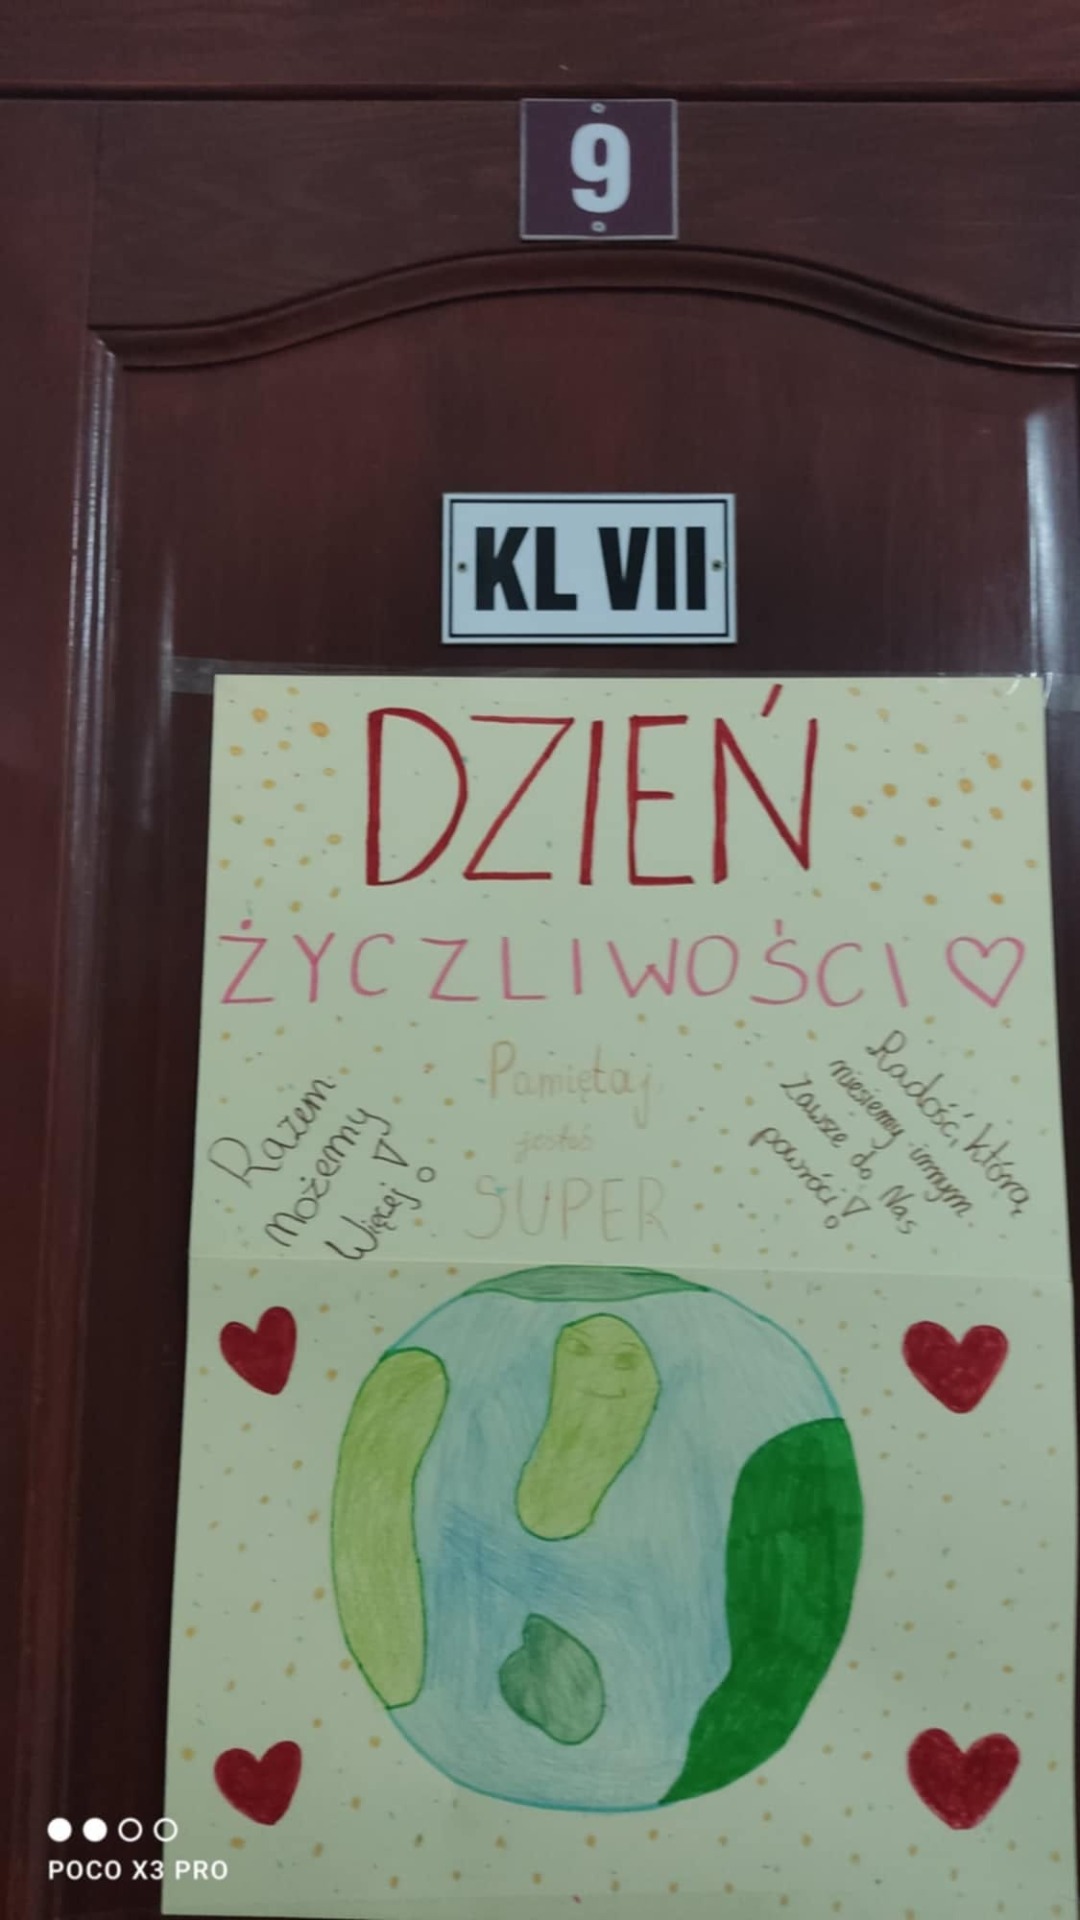 9
KL VII
DZIEŃ
ŻYCZLIWOŚCI
Razem
możemy
Więcej!
Pamiętaj
jesteś
SUPER
Radość, którą
niesiemy innym
Zawsze do Nas
powróci!
POCO X3 PRO